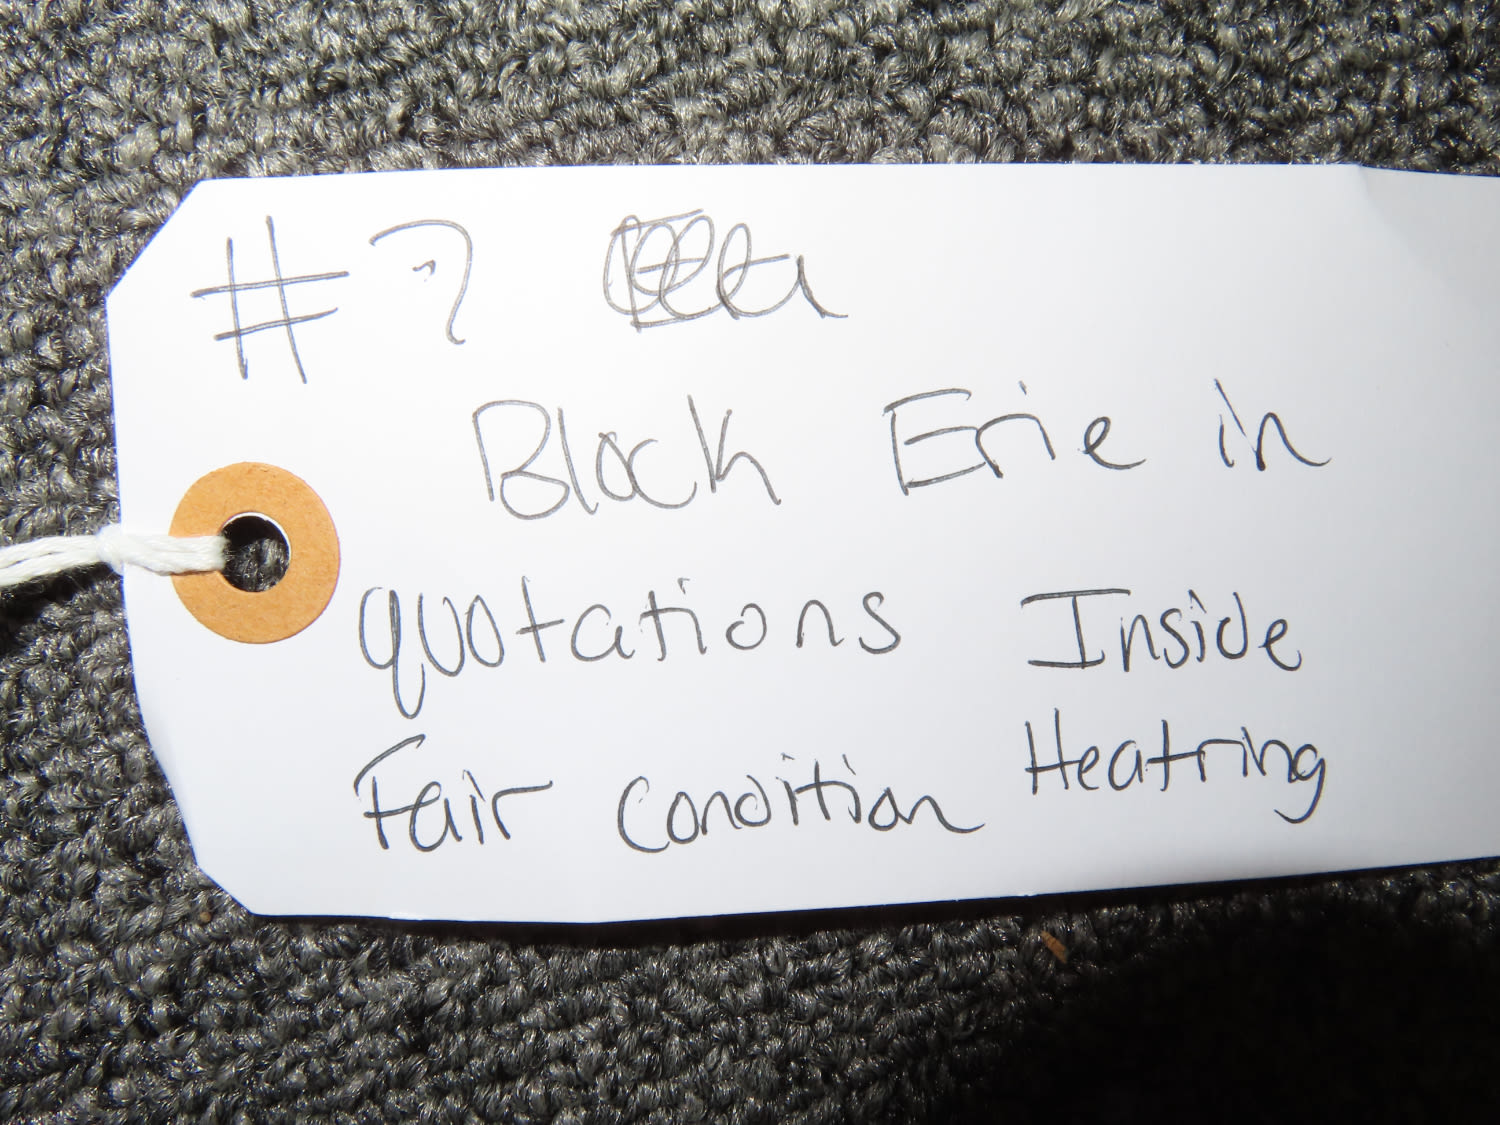 #7
Block Erie in
quotations Inside
Fair Condition Heatring